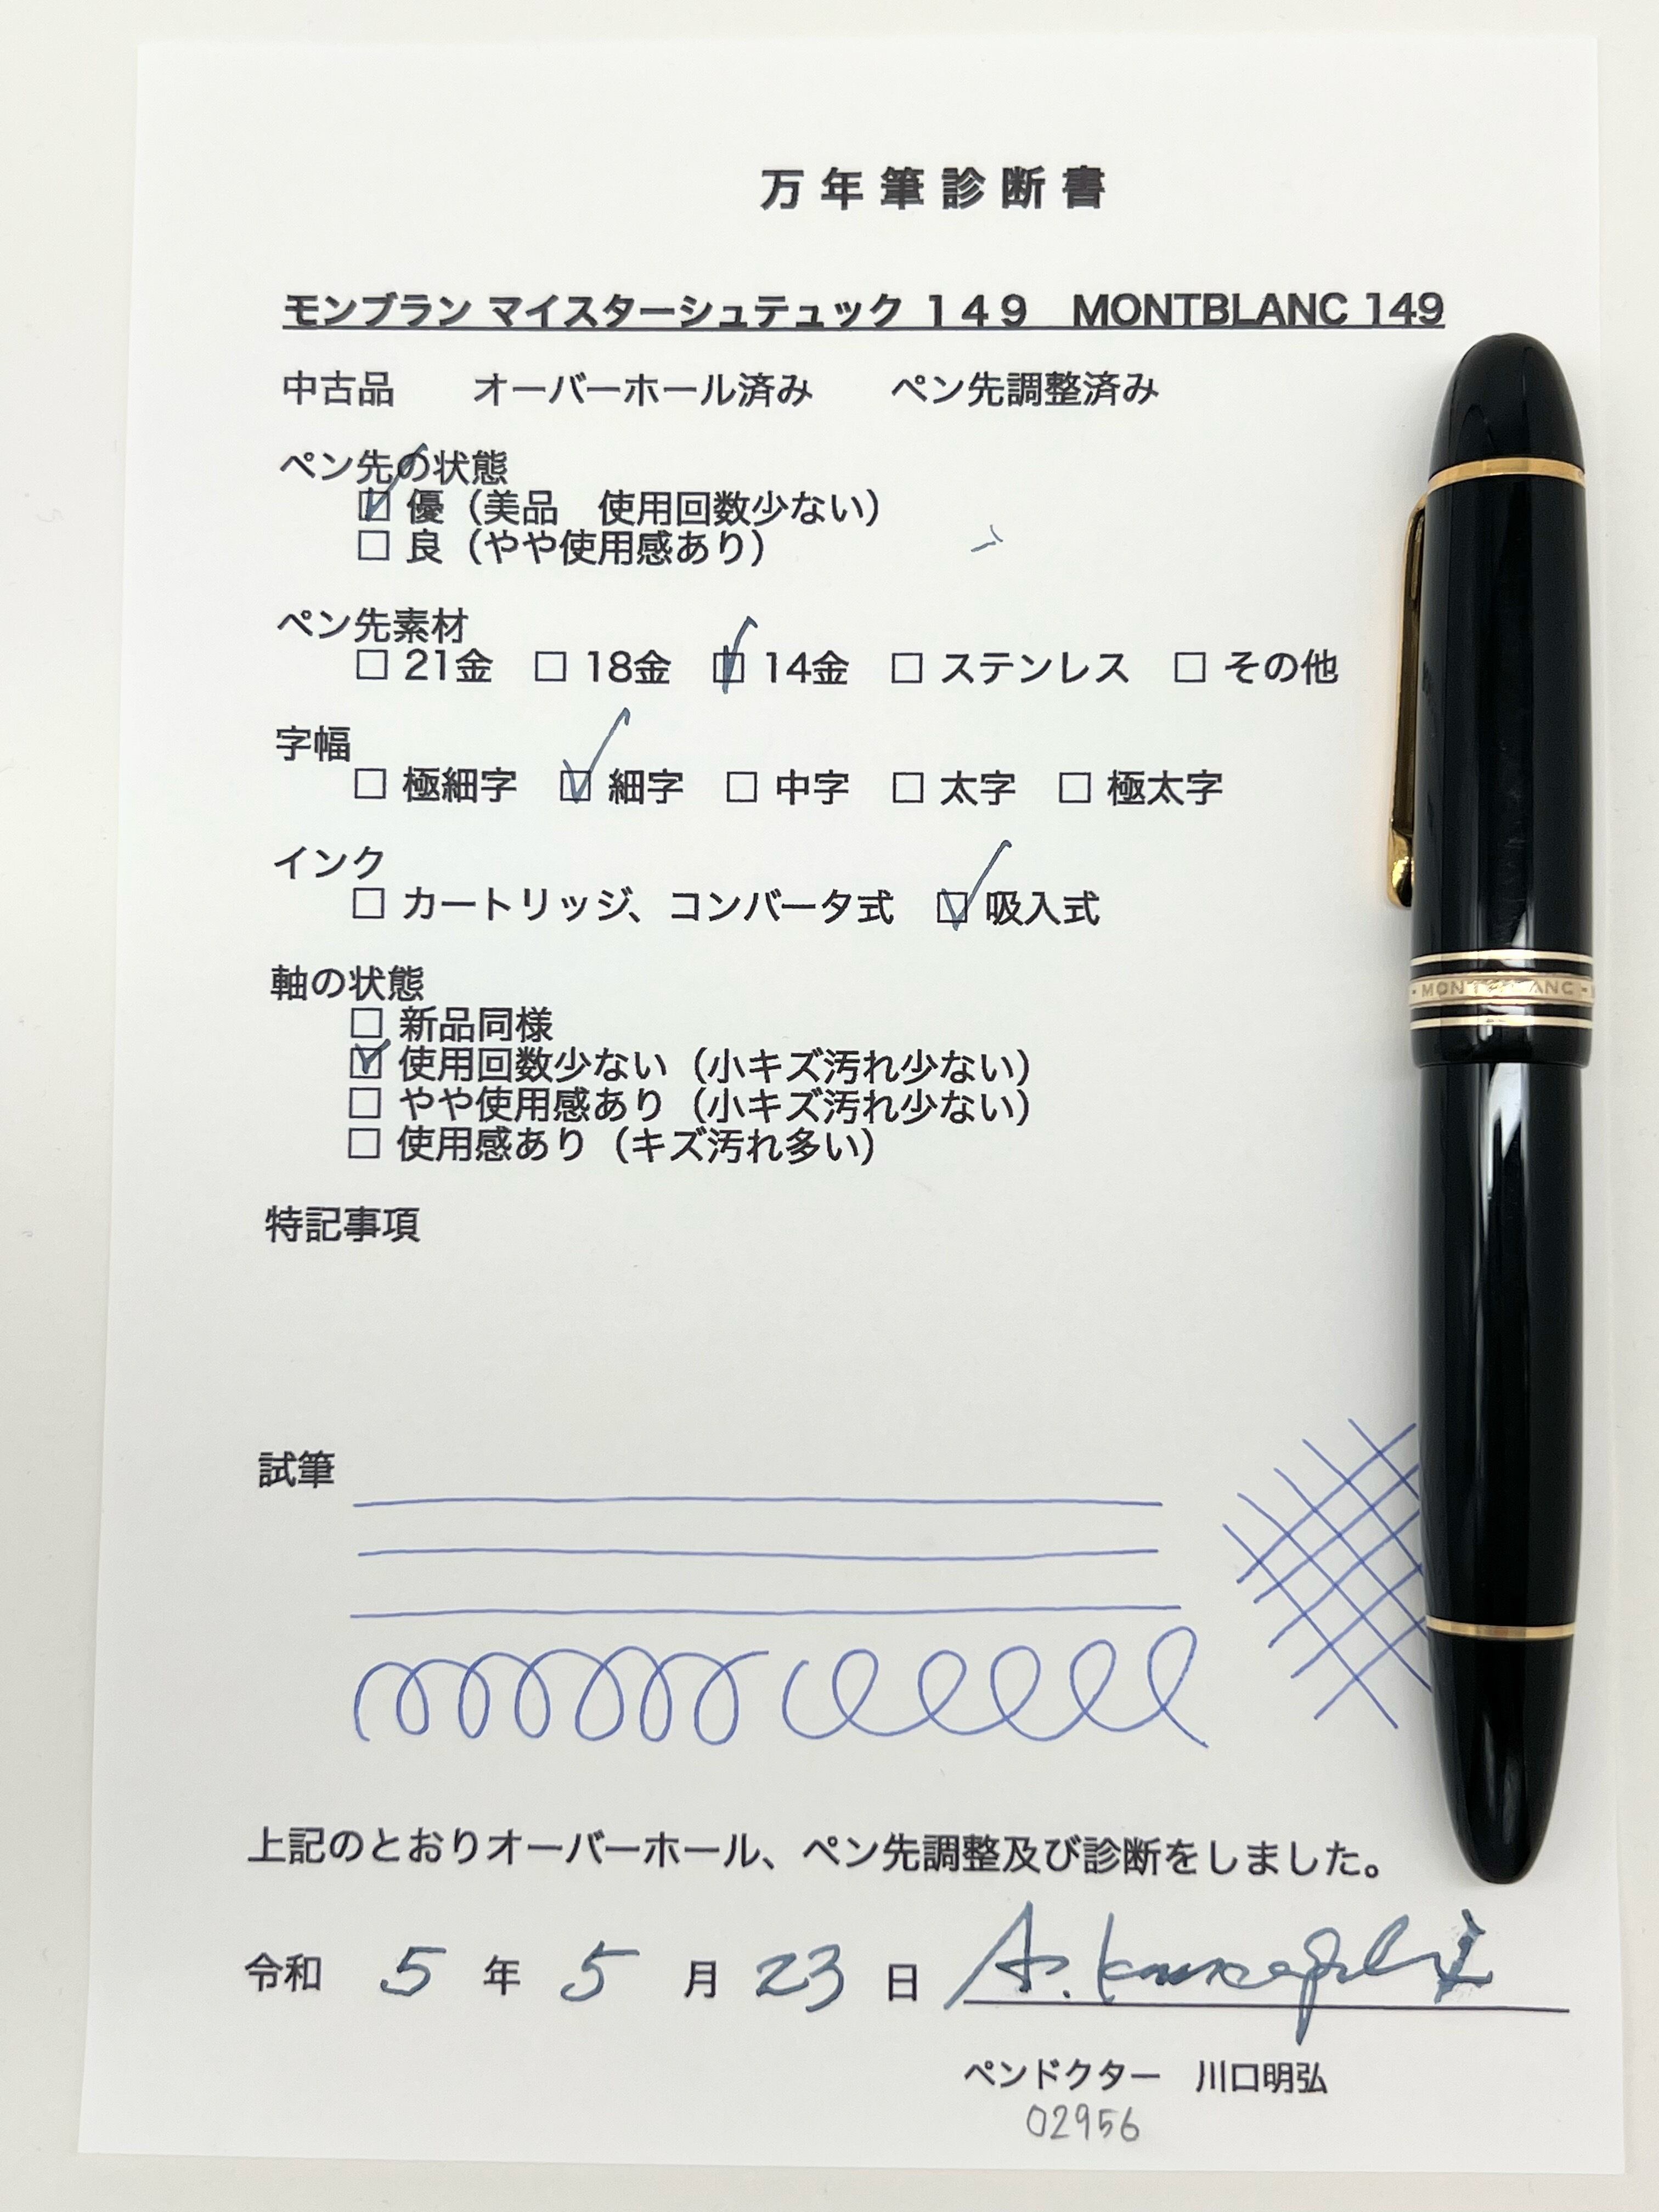 万年筆診断書
モンブラン マイスターシュテュック １４９　MONTBLANC 149
中古品　　オーバーホール済み　　ペン先調整済み
ペン先の状態
☑ 優（美品　使用回数少ない）
□ 良（やや使用感あり）
ペン先素材
□ 21金　□ 18金　☑ 14金　□ ステンレス　□ その他
字幅
□ 極細字　☑ 細字　□ 中字　□ 太字　□ 極太字
インク
□ カートリッジ、コンバータ式　☑ 吸入式
軸の状態
□ 新品同様
☑ 使用回数少ない（小キズ汚れ少ない）
□ やや使用感あり（小キズ汚れ少ない）
□ 使用感あり（キズ汚れ多い）
- MONTBLANC -
特記事項
試筆
上記のとおりオーバーホール、ペン先調整及び診断をしました。
令和 5 年 5 月 23 日 A. Kawaguchi
ペンドクター　川口明弘
02956